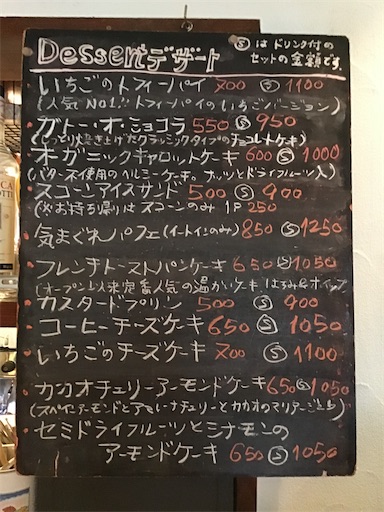 Dessert デザート
Ⓢ は ドリンク付の
セットの金額です。
いちごのトフィーパイ 700 Ⓢ 1100
(人気NO1!! トフィーパイのいちごバージョン)
ガトー・オ・ショコラ 550 Ⓢ 950
(しっとり焼き上げたクラシックタイプのチョコレートケーキ)
オーガニックキャロットケーキ 600 Ⓢ 1000
(バター不使用のヘルシーケーキ。ナッツとドライフルーツ入)
スコーンアイスサンド 500 Ⓢ 900
(※お持ち帰りは スコーンのみ 1P 250
気まぐれパフェ(イートインのみ) 850 Ⓢ 1250
フレンチトーストパンケーキ 650 Ⓢ 1050
(オープン以来定番人気の温かいケーキ はちみつ&ホイップ)
カスタードプリン 500 Ⓢ 900
コーヒーチーズケーキ 650 Ⓢ 1050
いちごのチーズケーキ 700 Ⓢ 1100
カカオチェリーアーモンドケーキ 650 Ⓢ 1050
(スペインアーモンドとアマレーナチェリーとカカオのマリアージュ)
セミドライフルーツとシナモンの
アーモンドケーキ 650 Ⓢ 1050